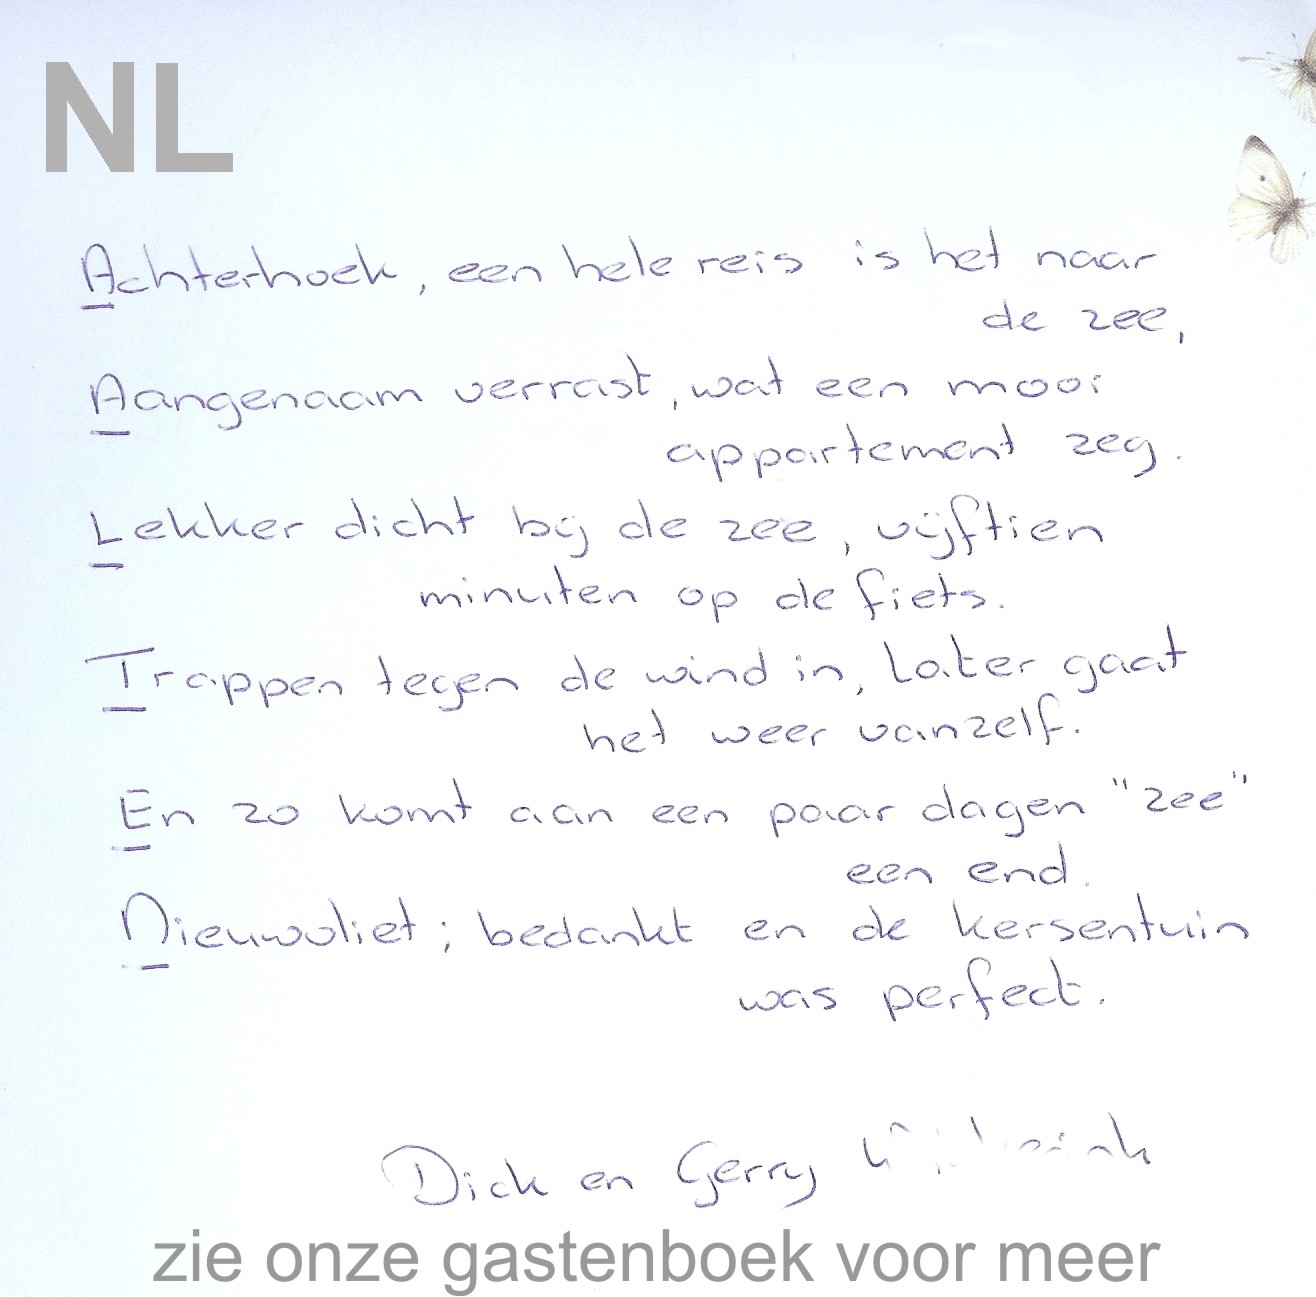 NL
Achterhoek, een hele reis is het naar
de zee,
Aangenaam verrast, wat een mooi
appartement zeg.
Lekker dicht bij de zee, vijftien
minuten op de fiets.
Trappen tegen de wind in, later gaat
het weer vanzelf.
En zo komt aan een paar dagen "zee"
een end.
Nieuwvliet; bedankt en de kersentuin
was perfect.
Dick en Gerry
zie onze gastenboek voor meer